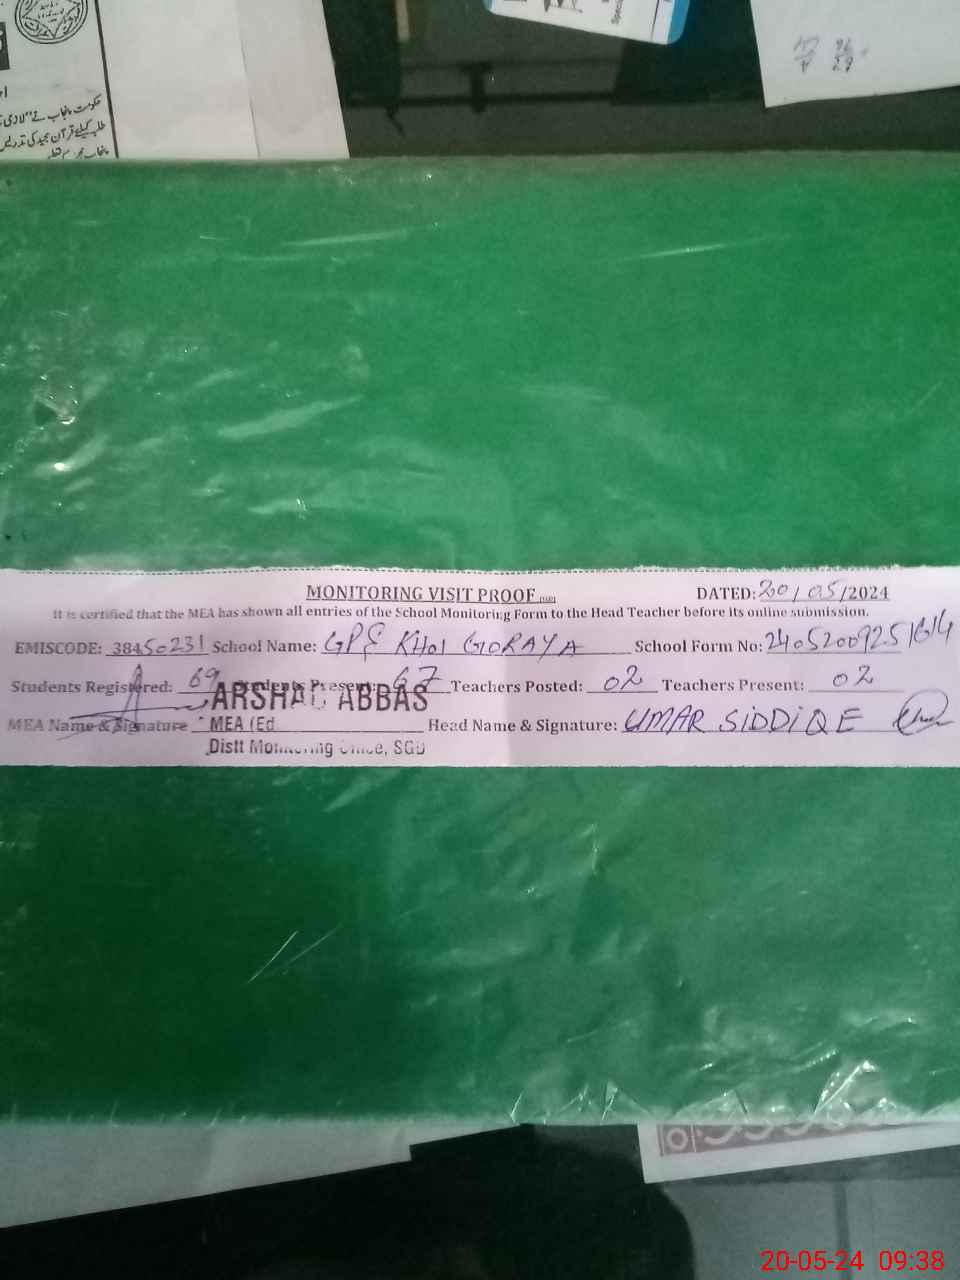 حکومت پنجاب نے "لازمی
طلبہ کیلئے قرآن مجید کی تدریس
MONITORING VISIT PROOF
DATED: 20/05/2024
It is certified that the MEA has shown all entries of the School Monitoring Form to the Head Teacher before its online submission.
EMISCODE: 38450231 School Name: GPS KHOI GORAYA School Form No:
Students Registered: 69 Students Present: 67 Teachers Posted: 02 Teachers Present: 02
ARSHAD ABBAS
MEA Name & Signature MEA (Ed Head Name & Signature: UMAR SiDDiQE
Distt Monitoring Office, SGD
20-05-24 09:38